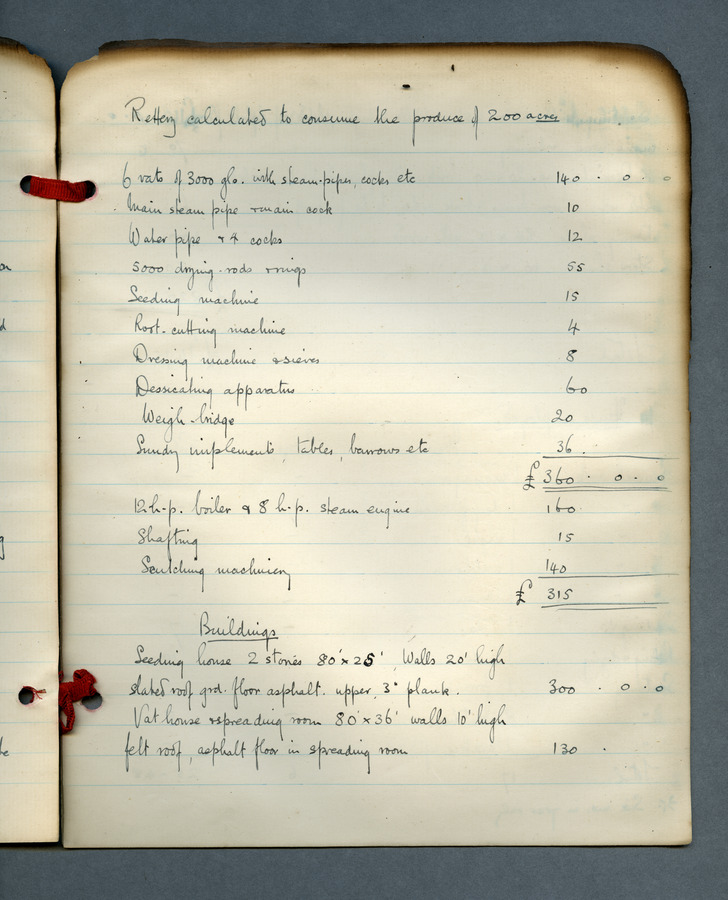 Rettery calculated to consume the produce of 200 acres
6 vats of 3000 gls. with steam-pipes, cocks etc 140 . 0 . 0
Main steam pipe + main cock 10
Water pipe + 4 cocks 12
5000 drying-rods + rings 55
Seeding machine 15
Root-cutting machine 4
Dressing machine & sieves 8
Dessicating apparatus 60
Weigh-bridge 20
Sundry implements, tables, barrows etc 36.
£ 360 . 0 . 0
12 h-p. boiler & 8 h-p. steam engine 160
Shafting 15
Scutching machinery 140
£ 315
Buildings
Seeding house 2 stories 80' x 25', Walls 20' high
slated roof grd. floor asphalt. upper, 3" plank. 300 . 0 . 0
Vat house + spreading room 80' x 36' walls 10' high
felt roof, asphalt floor in spreading room 130 .